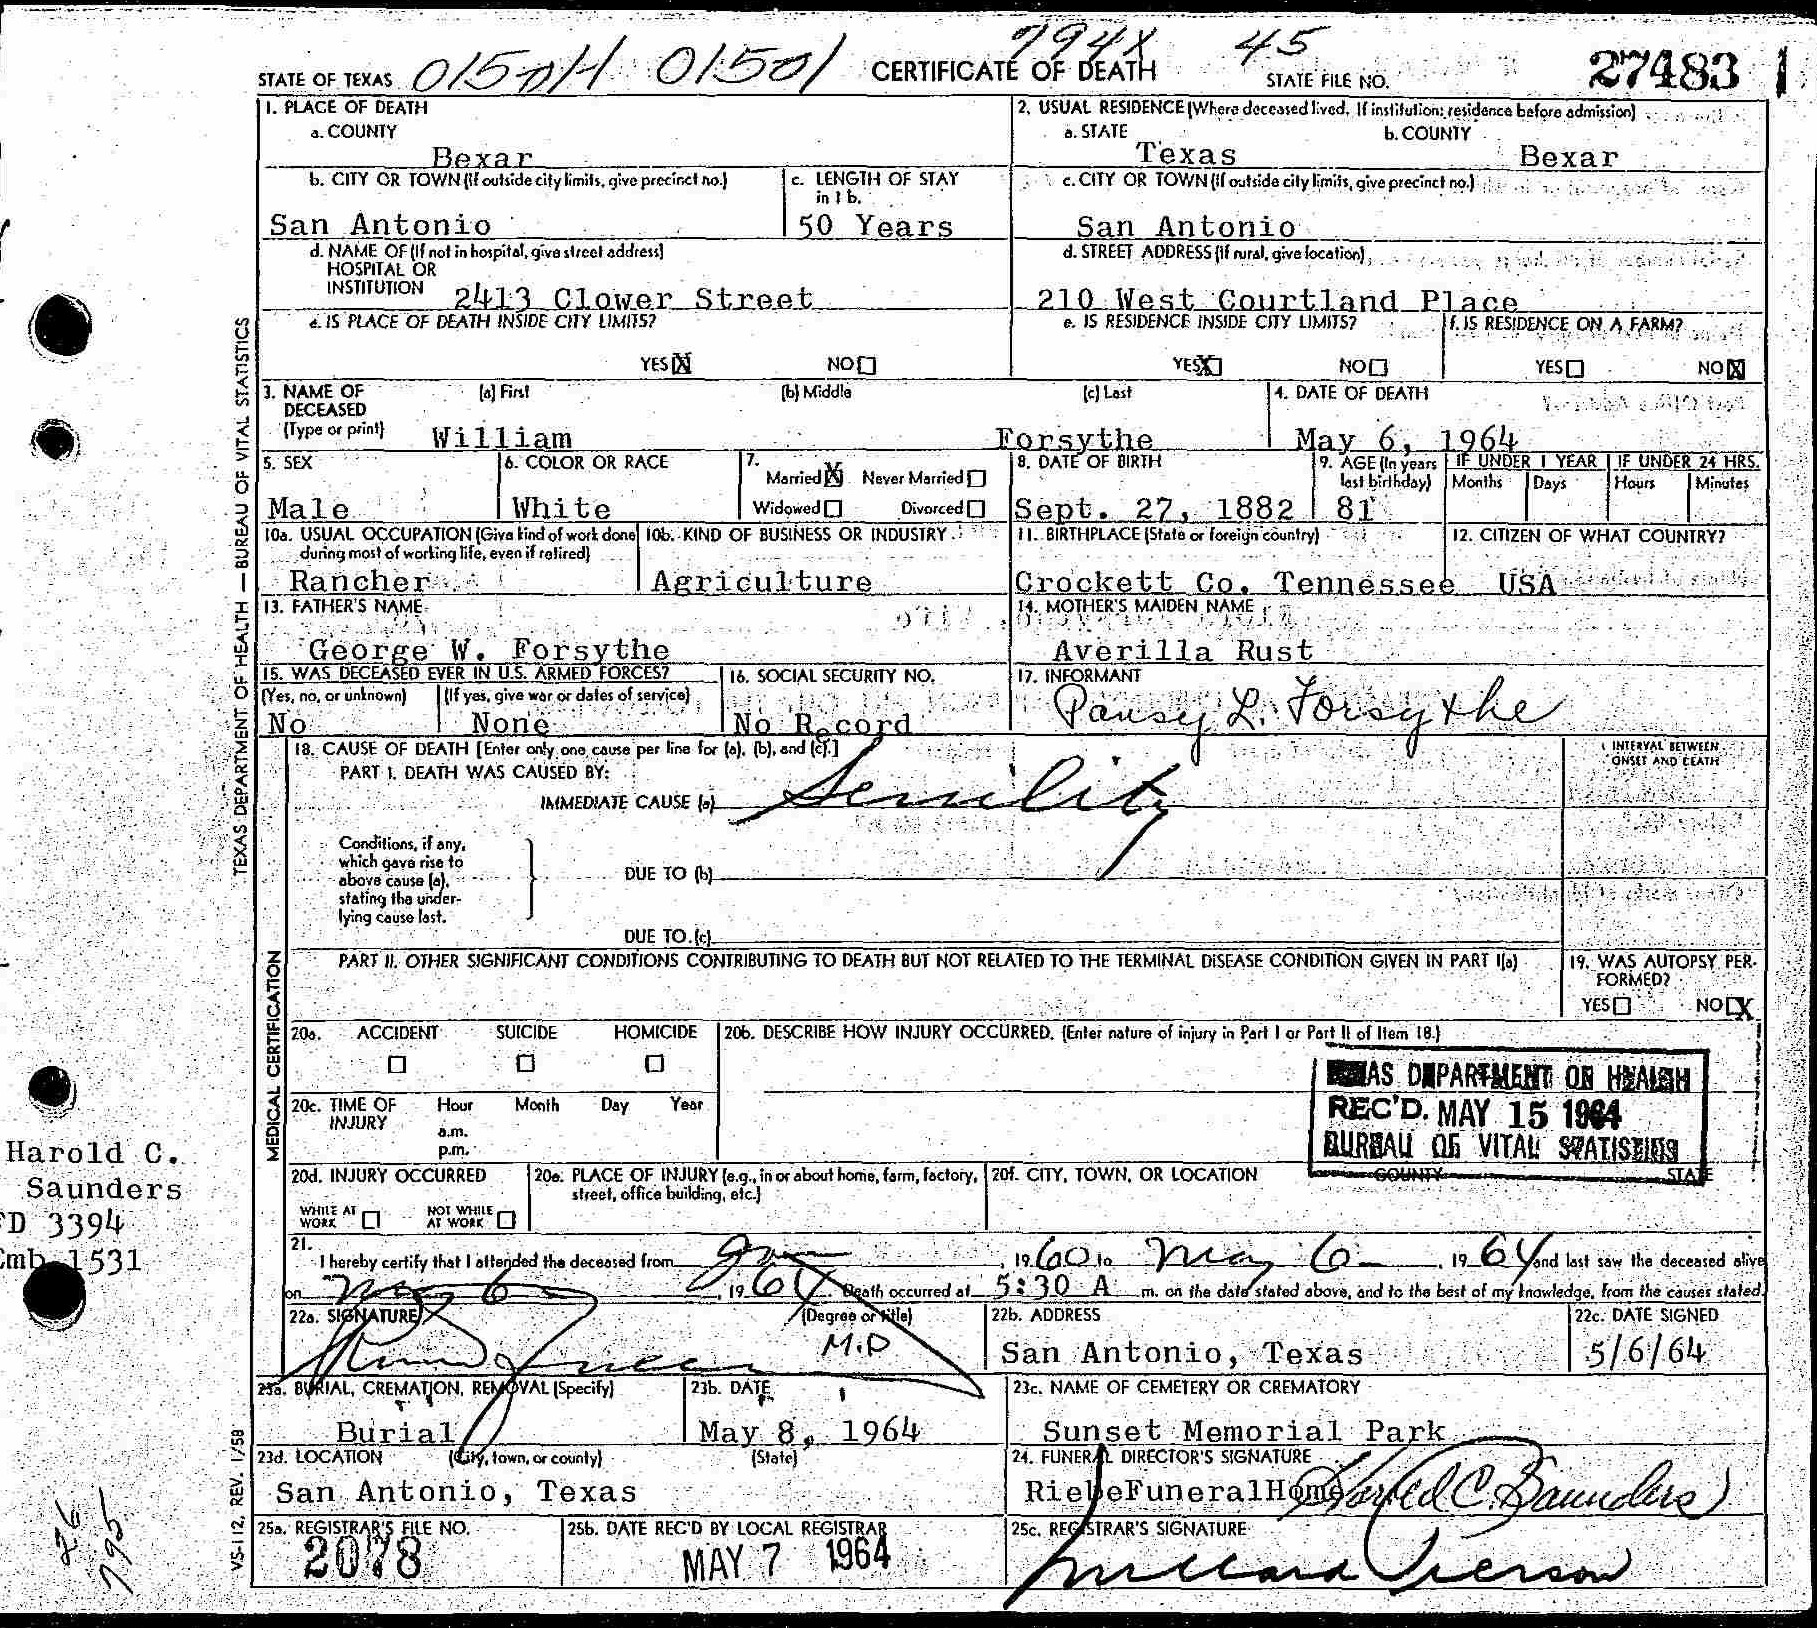 794X 45
STATE OF TEXAS 015 01501 CERTIFICATE OF DEATH STATE FILE NO. 27483 1
1. PLACE OF DEATH
a. COUNTY
Bexar
2. USUAL RESIDENCE (Where deceased lived. If institution: residence before admission)
a. STATE b. COUNTY
Texas Bexar
b. CITY OR TOWN (If outside city limits, give precinct no.)
San Antonio
c. LENGTH OF STAY
in 1 b.
50 Years
c. CITY OR TOWN (If outside city limits, give precinct no.)
San Antonio
d. NAME OF (If not in hospital, give street address)
HOSPITAL OR
INSTITUTION 2413 Clower Street
d. STREET ADDRESS (If rural, give location)
210 West Courtland Place
e. IS PLACE OF DEATH INSIDE CITY LIMITS?
YES X NO
e. IS RESIDENCE INSIDE CITY LIMITS?
YES X NO
f. IS RESIDENCE ON A FARM?
YES NO X
3. NAME OF (a) First (b) Middle (c) Last
DECEASED
(Type or print) William Forsythe
4. DATE OF DEATH
May 6, 1964
5. SEX
Male
6. COLOR OR RACE
White
7.
Married X Never Married
Widowed Divorced
8. DATE OF BIRTH
Sept. 27, 1882
9. AGE (In years
last birthday)
81
IF UNDER 1 YEAR IF UNDER 24 HRS.
Months Days Hours Minutes
10a. USUAL OCCUPATION (Give kind of work done
during most of working life, even if retired)
Rancher
10b. KIND OF BUSINESS OR INDUSTRY
Agriculture
11. BIRTHPLACE (State or foreign country)
Crockett Co. Tennessee
12. CITIZEN OF WHAT COUNTRY?
USA
13. FATHER'S NAME
George W. Forsythe
14. MOTHER'S MAIDEN NAME
Averilla Rust
15. WAS DECEASED EVER IN U.S. ARMED FORCES?
(Yes, no, or unknown) (If yes, give war or dates of service)
No None
16. SOCIAL SECURITY NO.
No Record
17. INFORMANT
Pansy L. Forsythe
18. CAUSE OF DEATH [Enter only one cause per line for (a), (b), and (c).]
PART I. DEATH WAS CAUSED BY:
IMMEDIATE CAUSE (a) Senility
INTERVAL BETWEEN
ONSET AND DEATH
Conditions, if any,
which gave rise to
above cause (a),
stating the under-
lying cause last.
DUE TO (b)
DUE TO (c)
PART II. OTHER SIGNIFICANT CONDITIONS CONTRIBUTING TO DEATH BUT NOT RELATED TO THE TERMINAL DISEASE CONDITION GIVEN IN PART I(a)
19. WAS AUTOPSY PER-
FORMED?
YES NO X
20a. ACCIDENT SUICIDE HOMICIDE
20b. DESCRIBE HOW INJURY OCCURRED. (Enter nature of injury in Part I or Part II of Item 18.)
20c. TIME OF Hour Month Day Year
INJURY
a.m.
p.m.
TEXAS DEPARTMENT OF HEALTH
REC'D. MAY 15 1964
BUREAU OF VITAL STATISTICS
20d. INJURY OCCURRED
WHILE AT
WORK
NOT WHILE
AT WORK
20e. PLACE OF INJURY (e.g., in or about home, farm, factory,
street, office building, etc.)
20f. CITY, TOWN, OR LOCATION COUNTY STATE
21.
I hereby certify that I attended the deceased from Jan 1960 to May 6 1964 and last saw the deceased alive
on May 6, 1964. Death occurred at 5:30 A m. on the date stated above, and to the best of my knowledge, from the causes stated.
22a. SIGNATURE (Degree or title)
M.D
22b. ADDRESS
San Antonio, Texas
22c. DATE SIGNED
5/6/64
23a. BURIAL, CREMATION, REMOVAL (Specify)
Burial
23b. DATE
May 8, 1964
23c. NAME OF CEMETERY OR CREMATORY
Sunset Memorial Park
23d. LOCATION (City, town, or county) (State)
San Antonio, Texas
24. FUNERAL DIRECTOR'S SIGNATURE
Riebe Funeral Home Harold C. Saunders
25a. REGISTRAR'S FILE NO.
2078
25b. DATE REC'D BY LOCAL REGISTRAR
MAY 7 1964
25c. REGISTRAR'S SIGNATURE
Willard Pierson
TEXAS DEPARTMENT OF HEALTH — BUREAU OF VITAL STATISTICS
MEDICAL CERTIFICATION
VS-112, REV. 1/58
Harold C.
Saunders
FD 3394
Emb 1531
795